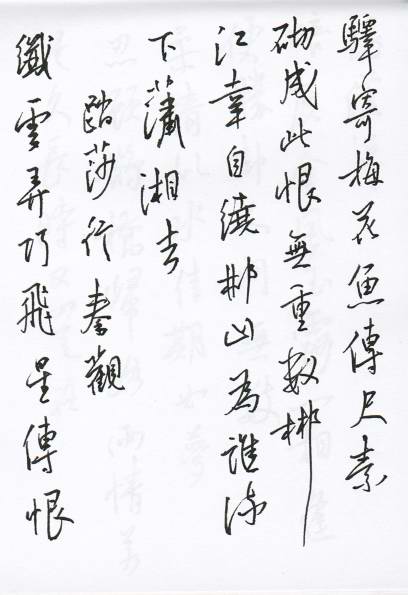 驛寄梅花魚傳尺素
砌成此恨無重數郴
江幸自繞郴山為誰流
下瀟湘去
踏莎行秦觀
纖雲弄巧飛星傳恨